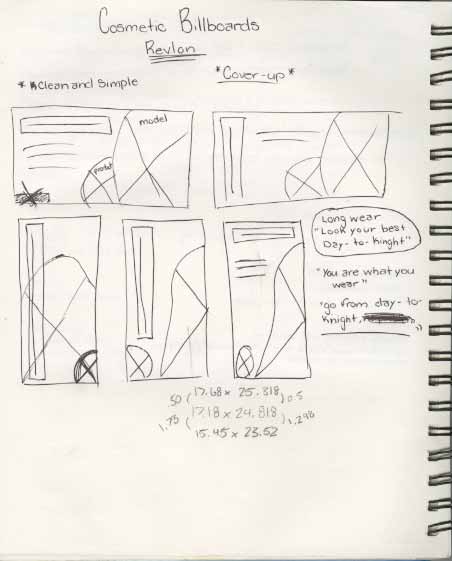 Cosmetic Billboards
Revlon
* Clean and Simple
*Cover-up*
model
Long wear
"Look your best
Day-to-Knight"
"You are what you
wear"
"go from day-to-
Knight,
.50 (17.68 x 25.318) 0.5
1.73 (17.18 x 24.818) 1.298
15.45 x 23.52